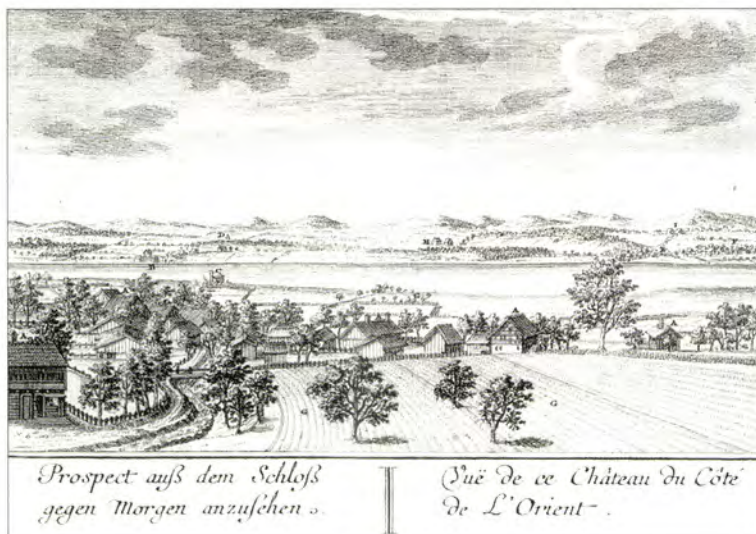 Prospect auß dem Schloß
gegen Morgen anzusehen.
Vuë de ce Château du Côté
de L'Orient.
G
G